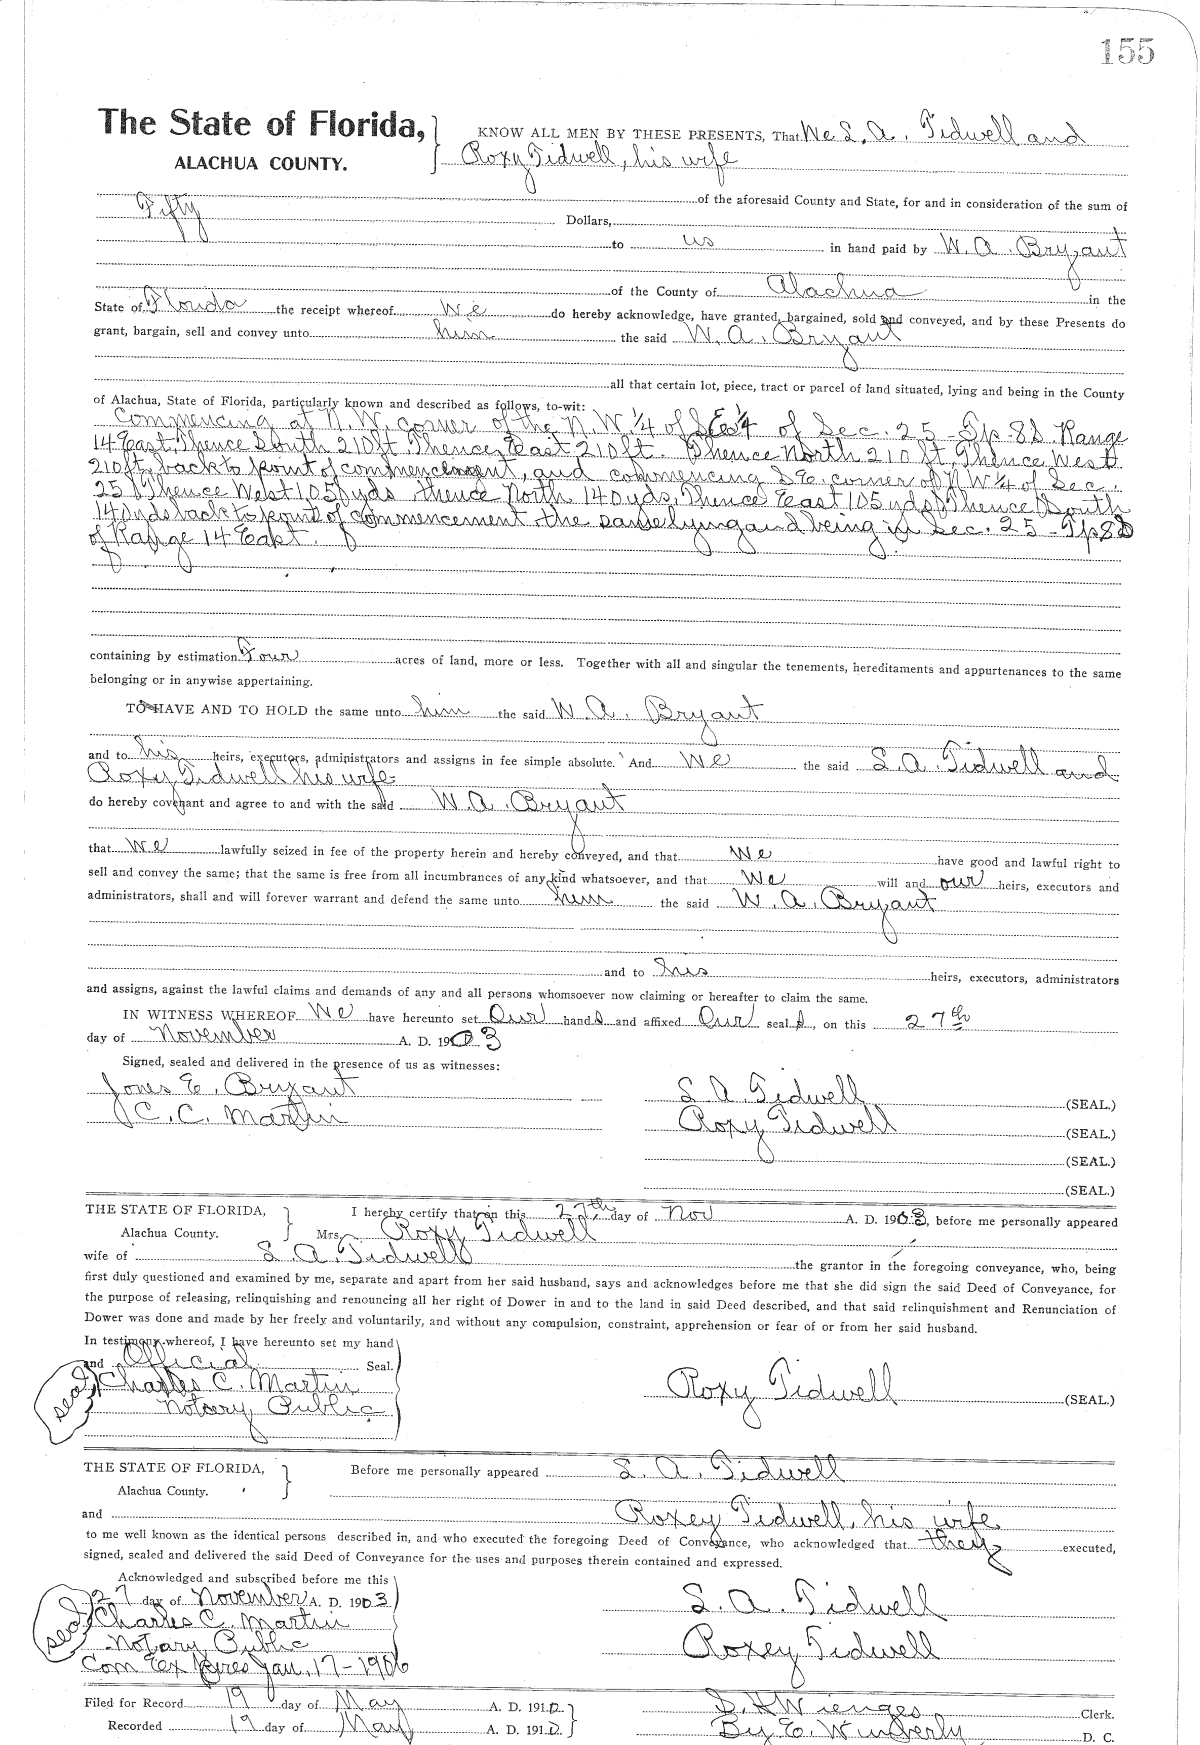 155
The State of Florida, KNOW ALL MEN BY THESE PRESENTS, That We S. A. Tidwell and
ALACHUA COUNTY. Roxy Tidwell, his wife
of the aforesaid County and State, for and in consideration of the sum of
Fifty Dollars,
to us in hand paid by W. A. Bryant
of the County of Alachua in the
State of Florida the receipt whereof We do hereby acknowledge, have granted, bargained, sold and conveyed, and by these Presents do
grant, bargain, sell and convey unto him the said W. A. Bryant
all that certain lot, piece, tract or parcel of land situated, lying and being in the County
of Alachua, State of Florida, particularly known and described as follows, to-wit:
Commencing at N.W. corner of the N.W 1/4 of SE 1/4 of Sec. 25 - Tp. 8S Range
14 East, Thence South 210 ft, Thence East 210 ft. Thence North 210 ft, Thence West
210 ft, back to point of commencement, and commencing S.E. corner of N W 1/4 of Sec.
25 Thence West 105 yds thence North 140 yds, Thence East 105 yds Thence South
140 yds back to point of commencement the same lying and being in Sec. 25 - Tp 8S
of Range 14 East.
containing by estimation Four acres of land, more or less. Together with all and singular the tenements, hereditaments and appurtenances to the same
belonging or in anywise appertaining.
TO HAVE AND TO HOLD the same unto him the said W. A. Bryant
and to his heirs, executors, administrators and assigns in fee simple absolute. And We the said S. A. Tidwell and
Roxy Tidwell his wife
do hereby covenant and agree to and with the said W. A. Bryant
that We lawfully seized in fee of the property herein and hereby conveyed, and that We have good and lawful right to
sell and convey the same; that the same is free from all incumbrances of any kind whatsoever, and that We will and our heirs, executors and
administrators, shall and will forever warrant and defend the same unto him the said W. A. Bryant
and to his heirs, executors, administrators
and assigns, against the lawful claims and demands of any and all persons whomsoever now claiming or hereafter to claim the same.
IN WITNESS WHEREOF We have hereunto set Our hands and affixed Our seals, on this 27th
day of November A. D. 1903
Signed, sealed and delivered in the presence of us as witnesses:
Jones E. Bryant S. A. Tidwell (SEAL.)
C. C. Martin Roxy Tidwell (SEAL.)
(SEAL.)
(SEAL.)
THE STATE OF FLORIDA, I hereby certify that on this 27th day of Nov A. D. 1903, before me personally appeared
Alachua County. Mrs. Roxy Tidwell
wife of S. A. Tidwell the grantor in the foregoing conveyance, who, being
first duly questioned and examined by me, separate and apart from her said husband, says and acknowledges before me that she did sign the said Deed of Conveyance, for
the purpose of releasing, relinquishing and renouncing all her right of Dower in and to the land in said Deed described, and that said relinquishment and Renunciation of
Dower was done and made by her freely and voluntarily, and without any compulsion, constraint, apprehension or fear of or from her said husband.
In testimony whereof, I have hereunto set my hand
and Official Seal.
seal Charles C. Martin Roxy Tidwell (SEAL.)
Notary Public
THE STATE OF FLORIDA, Before me personally appeared S. A. Tidwell
Alachua County.
and Roxey Tidwell, his wife
to me well known as the identical persons described in, and who executed the foregoing Deed of Conveyance, who acknowledged that they executed,
signed, sealed and delivered the said Deed of Conveyance for the uses and purposes therein contained and expressed.
Acknowledged and subscribed before me this
27 day of November A. D. 1903 S. A. Tidwell
seal Charles C. Martin
Notary Public Roxey Tidwell
Com Expires Jan. 17-1906
Filed for Record 19 day of May A. D. 1910 S. H Wienges Clerk.
Recorded 19 day of May A. D. 1910 By E. Wimberly D. C.